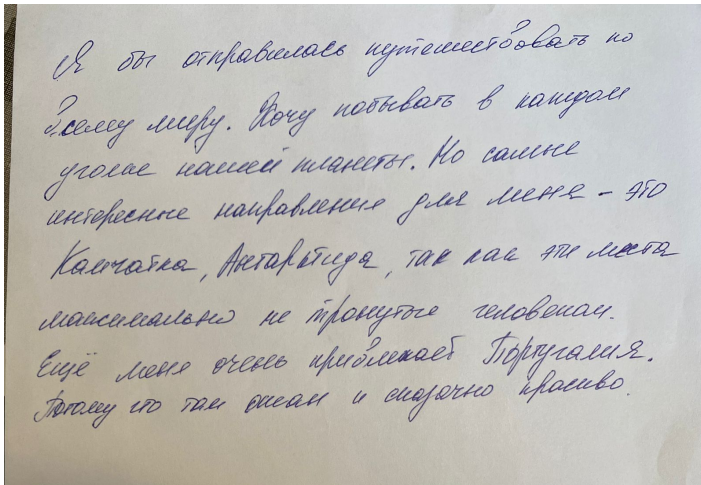 Я бы отправилась путешествовать по
всему миру. Хочу побывать в каждом
уголке нашей планеты. Но самые
интересные направления для меня – это
Камчатка, Антарктида, так как эти места
максимально не тронутые человеком.
Ещё меня очень привлекает Португалия.
Потому что там океан и сказочно красиво.